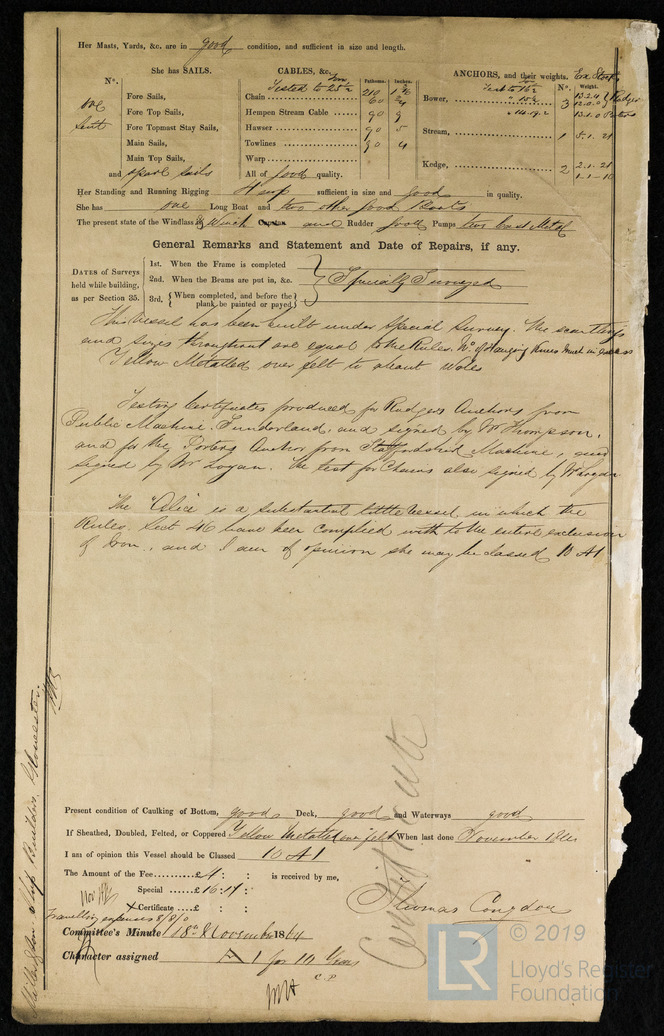 Her Masts, Yards, &c. are in good condition, and sufficient in size and length.
She has SAILS.
CABLES, &c.
ANCHORS, and their weights.
Nº.
Fathoms.
Inches.
Nº.
Weight.
one
Fore Sails,
Fore Top Sails,
Fore Topmast Stay Sails,
Main Sails,
Main Top Sails,
and spare sails
Tested to 25
Chain
Hempen Stream Cable 90 9
Hawser 90 5
Towlines 90 4
Warp
All of good quality.
Bower, 3
Stream, 1 5.1.21
Kedge, 2 2.1.21
1.1.10
Her Standing and Running Rigging Hemp sufficient in size and good in quality.
She has one Long Boat and two other good Boats
The present state of the Windlass is Winch Capstan and Rudder good Pumps two best Metal
General Remarks and Statement and Date of Repairs, if any.
DATES of Surveys held while building, as per Section 35.
1st. When the Frame is completed
2nd. When the Beams are put in, &c.
3rd. When completed, and before the plank be painted or payed
Specially Surveyed
This Vessel has been built under Special Survey. The scantlings
and sizes throughout are equal to the Rules. Nº. of Hanging Knees
Yellow Metalled over felt to about Wales
Testing Certificates produced for Rodgers Anchors from
Public Machine, Sunderland, and signed by Wm Thompson,
and for the Porters Anchor from Staffordshire Machine, and
signed by Mr Logan. The test for Chains also signed by Mr Logan
The "Alice is a substantial little Vessel in which the
Rules. Sect 46 have been complied with to the entire exclusion
of Iron., and I am of opinion she may be classed 10 A1
Millington Ship Builder, Gloucester.
Present condition of Caulking of Bottom, good Deck, good and Waterways good
If Sheathed, Doubled, Felted, or Coppered Yellow Metalled over felt When last done November 1864
I am of opinion this Vessel should be Classed 10 A1
The Amount of the Fee......£4 : : is received by me,
Special ......£16:17 :
Certificate ...£ : :
travelling expenses 8/8/0
Thomas Congdon
Certificate
Committee's Minute 18th November 1864
Character assigned A 1 for 10 Years
LR
© 2019
Lloyd's Register
Foundation